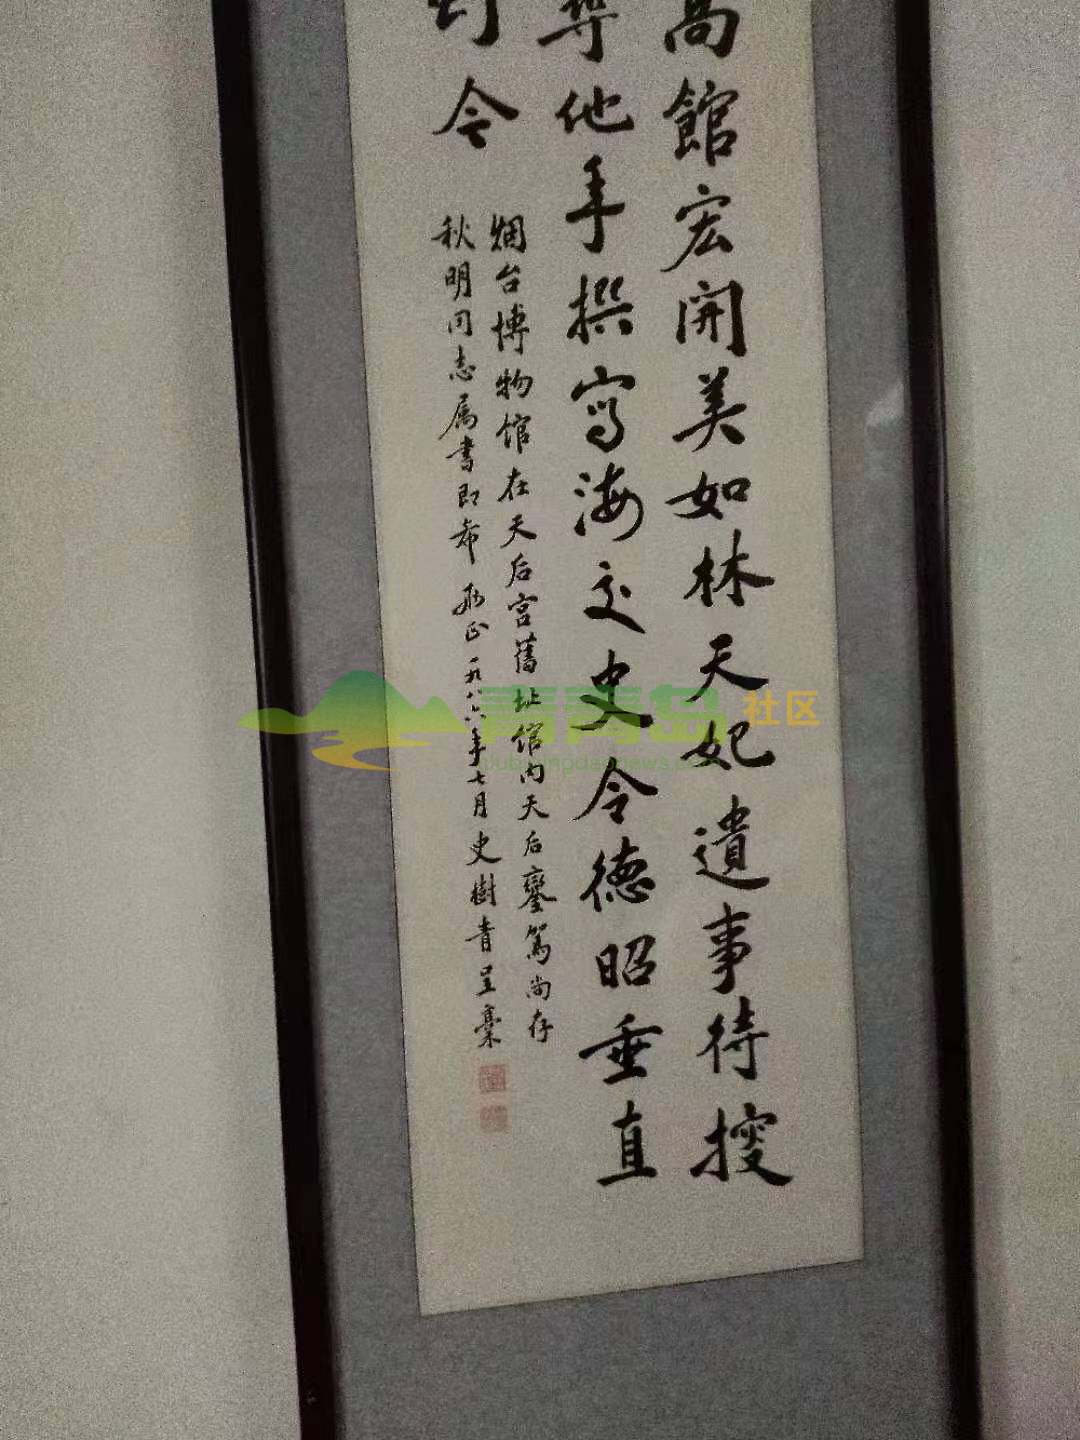 高館宏開美如林天妃遺事待搜
尋他手撰寫海交史令德昭垂直
到今
烟台博物馆在天后宫舊址馆内天后鑾篤尚存
秋明同志属書即希 教正 一九八六年七月 史樹青呈稾
青青岛社区
club.qingdaonews.com